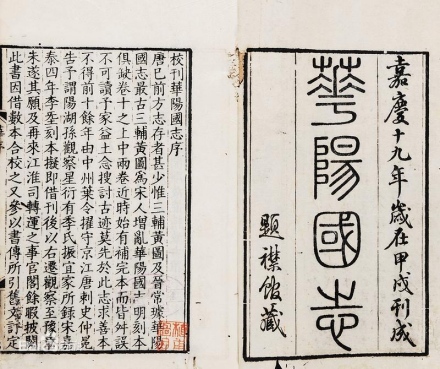 嘉慶十九年歲在甲戌刊成
華陽國志
題襟館藏
校刊華陽國志序
唐已前方志存者甚少惟三輔黃圖及晉常璩華陽
國志最古三輔黃圖為宋人增亂華陽國志明刻本
俱缺卷十之上中兩卷近時始有補完本而皆舛誤
不可讀予家益土念搜討古迹莫先於此志求善本
不得前十餘年由中州葉令擢守京江唐刺史仲冕
告予謂陽湖孫觀察星衍有李氏振宜家所錄宋嘉
泰四年李𡌴刻本擬即借刊後以右遷觀察至豫章
未遂其願及再來江淮司轉運之事官閣餘暇披閱
此書因借數本合校之又參以書傳所引舊文訂定